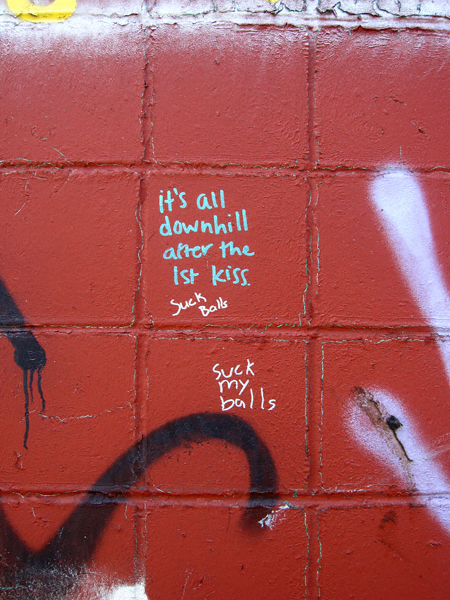 it's all
downhill
after the
1st kiss.
Suck
Balls
suck
my
balls